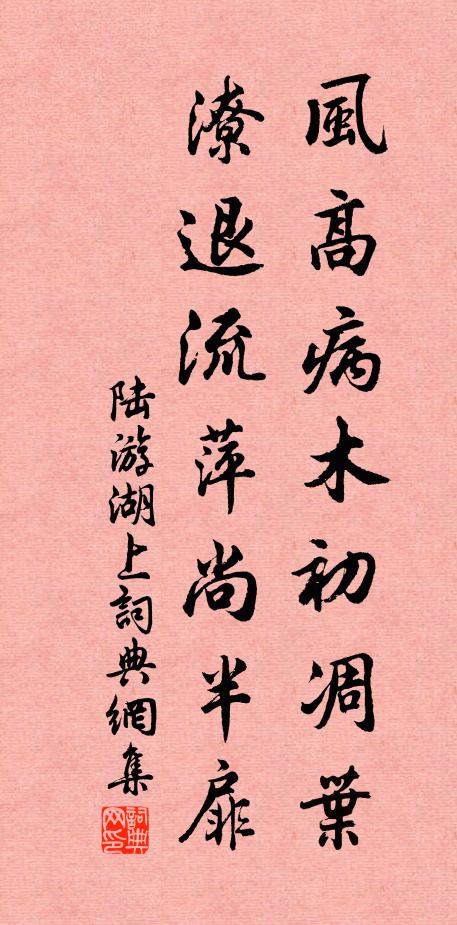 風高病木初凋葉
潦退流萍尚半扉
陆游湖上詞典網集
詞典网印